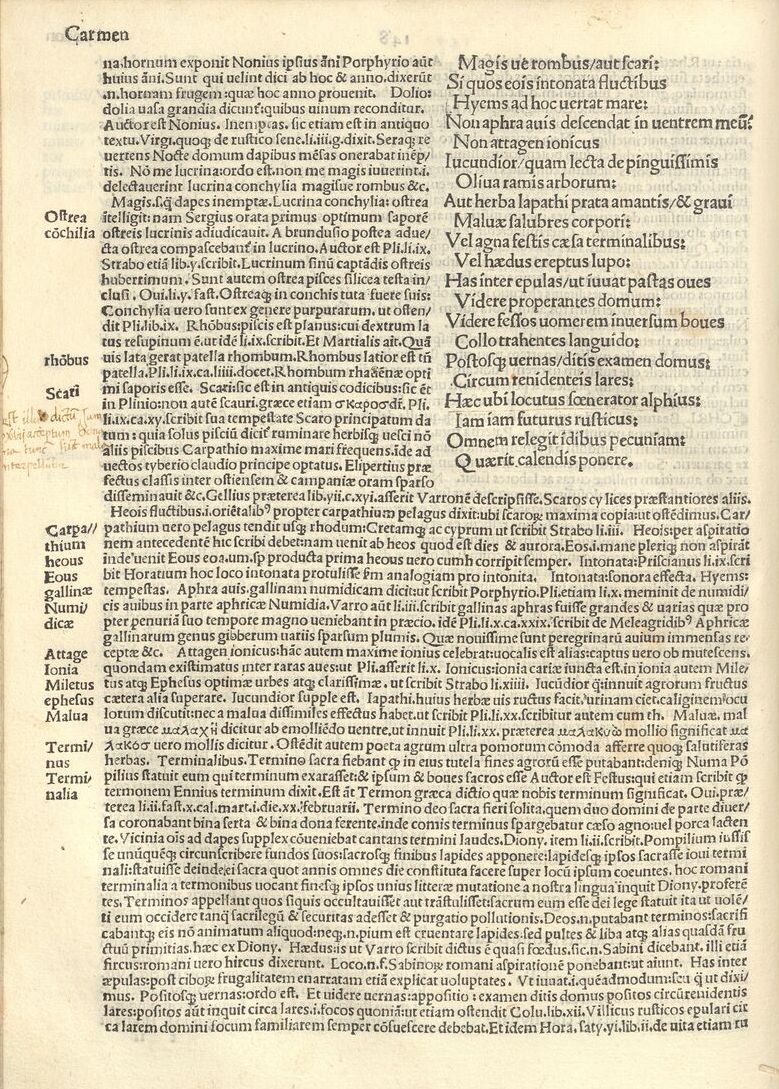 Carmen
na.hornum exponit Nonius ipsius āni Porphyrio aūt
huius āni. Sunt qui uelint dici ab hoc & anno.dixerūt
.n.hornam frugem:quæ hoc anno prouenit. Dolio:
dolia uasa grandia dicunt:quibus uinum reconditur.
Auctor est Nonius. Inemptas. sic etiam est in antiquo
textu. Virgi.quoq; de rustico sene.li.iii.g.dixit. Seraq; re
uertens Nocte domum dapibus mēsas onerabat inēp/
tis. Nō me lucrina:ordo est.non me magis iuuerint.i.
delectauerint lucrina conchylia magisue rombus &c.
Magis.s.q̄ dapes inemptæ. Lucrina conchylia: ostrea
ītelligit: nam Sergius orata primus optimum saporē
ostreis lucrinis adiudicauit. A brundusio postea adue/
cta ostrea compascebant in lucrino. Auctor est Pli.li.ix.
Strabo etiā lib.y.scribit. Lucrinum sinū captādis ostreis
huberrimum. Sunt autem ostrea pisces silicea testa in/
clusi. Oui.li.y.fast. Ostreaq; in conchis tuta fuere suis:
Conchylia uero sunt ex genere purpurarum. ut osten/
dit Pli.lib.ix. Rhōbus:piscis est planus:cui dextrum la
tus resupinum ē.ut idē li.ix.scribit. Et Martialis ait. Quā
uis lata gerat patella rhombum. Rhombus latior est tn̄
patella. Pli.li.ix.ca.liiii.docet. Rhombum rhauēnæ opti
mi saporis esse. Scari:sic est in antiquis codicibus:sic ēt
in Plinio:non autē scauri.græce etiam σκαροσ dr̄. Pli.
li.ix.ca.xy.scribit sua tempestate Scaro principatum da
tum: quia solus pisciū dicit ruminare herbisq; uesci nō
aliis piscibus Carpathio maxime mari frequens.īde ad
uectos tyberio claudio principe optatus. Elipertius præ
fectus classis inter ostiensem & campaniæ oram sparso
disseminauit &c. Gellius præterea lib.yii.c.xyi.asserit Varronē descripsisse. Scaros cy lices præstantiores aliis.
Magis ue rombus/aut scari:
Si quos eois intonata fluctibus
Hyems ad hoc uertat mare:
Non aphra auis descendat in uentrem meū:
Non attagen ionicus
Iucundior/quam lecta de pinguissimis
Oliua ramis arborum:
Aut herba lapathi prata amantis/& graui
Maluæ salubres corpori:
Vel agna festis cæsa terminalibus:
Vel hædus ereptus lupo:
Has inter epulas/ut iuuat pastas oues
Videre properantes domum:
Videre fessos uomerem inuersum boues
Collo trahentes languido:
Postosq; uernas/ditis examen domus:
Circum renidenteis lares:
Hæc ubi locutus fœnerator alphius:
Iam iam futurus rusticus:
Omnem relegit idibus pecuniam:
Quærit calendis ponere.
Heois fluctibus.i.oriētalib⁹ propter carpathium pelagus dixit:ubi scaroꝝ maxima copia:ut ostēdimus. Car/
pathium uero pelagus tendit usq; rhodum: Cretamq; ac cyprum ut scribit Strabo li.iii. Heois:per aspiratio
nem antecedentē hic scribi debet:nam uenit ab heos quod est dies & aurora. Eos.i.mane pleriq; non aspirāt
inde'uenit Eous eoa.um.sp producta prima heous uero cum h corripit semper. Intonata: Priscianus li.ix.scri
bit Horatium hoc loco intonata protulisse sm̄ analogiam pro intonita. Intonata:sonora effecta. Hyems:
tempestas. Aphra auis.gallinam numidicam dicit:ut scribit Porphyrio. Pli.etiam li.x. meminit de numidi/
cis auibus in parte aphricæ Numidia. Varro aūt li.iii.scribit gallinas aphras fuisse grandes & uarias quæ pro
pter penuriā suo tempore magno ueniebant in præcio. idē Pli.ix.ca.xxix.'scribit de Meleagridib⁹ Aphricæ
gallinarum genus gibberum uariis sparsum plumis. Quæ nouissime sunt peregrinarū auium immensas re/
ceptæ &c. Attagen ionicus:hāc autem maxime ionius celebrat:uocalis est alias:captus uero ob mutescens.
quondam existimatus inter raras aues:ut Pli.asserit li.x. Ionicus:ionia cariæ iuncta est.in ionia autem Mile/
tus atq; Ephesus optimæ urbes atq; clarissimæ. ut scribit Strabo li.xiiii. Iucūdior q̄:innuit agrorum fructus
cætera alia superare. Iucundior supple est. Iapathi.huius herbæ uis ructus facit.'urinam ciet.caliginem oculorum
lorum discutit:nec a malua dissimiles effectus habet.ut scribit Pli.li.xx.scribitur autem cum th. Maluæ. mal
ua græce μαλαχὴ dicitur ab emolliēdo uentre.ut innuit Pli.li.xx. præterea μαλακυὸ mollio significat μα
λακόσ uero mollis dicitur. Ostēdit autem poeta agrum ultra pomorum cōmoda afferre quoq; salutiferas
herbas. Terminalibus. Termino sacra fiebant ꝙ in eius tutela fines agrorū esse putabant:deniq; Numa Pō
pilius statuit eum qui terminum exarasset:& ipsum & boues sacros esse Auctor est Festus:qui etiam scribit ꝙ
termonem Ennius terminum dixit. Est āt Termon græca dictio quæ nobis terminum significat. Oui.præ/
terea li.ii.fast.x.cal.mart.i.die.xx.'februarii. Termino deo sacra fieri solita.quem duo domini de parte diuer/
sa coronabant bina serta & bina dona ferente.inde comis terminus spargebatur cæso agno:uel porca lacten
te. Vicinia ois ad dapes supplex cōueniebat cantans termini laudes. Diony. item li.ii.scribit. Pompilium iussis
se unūquēq; circunscribere fundos suos:sacrosq; finibus lapides apponere:lapidesq; ipsos sacrasse ioui termi
nali:statuisse deinde:ei sacra quot annis omnes die constituta facere super locū ipsum coeuntes. hoc romani
terminalia a termonibus uocant finesq; ipsos unius litteræ mutatione a nostra lingua inquit Diony.proferē
tes. Terminos appellant quos siquis occultauisset aut trāstulisset:sacrum eum esse dei lege statuit ita ut uolē/
ti eum occidere tanq̄ sacrilegū & securitas adesset & purgatio pollutionis. Deos.n.putabant terminos:sacrifi
cabantq; eis nō animatum aliquod:neq;.n.pium est cruentare lapides.sed pultes & liba atq; alias quasdā fru
ctuū primitias.hæc ex Diony. Hædus:is ut Varro scribit dictus ē quasi fœdus.sic.n.Sabini dicebant. illi etiā
fircus:romani uero hircus dixerunt. Loco.n.f.Sabinoꝝ romani aspirationē ponebant:ut aiunt. Has inter
æpulas:post ciboꝝ frugalitatem enarratam etiā explicat uoluptates. Vt iuuat.i.quēadmodum:seu q̄ ut dixi/
mus. Positosq; uernas:ordo est. Et uidere uernas:appositio : examen ditis domus positos circūrenidentis
lares:positos aūt inquit circa lares.i.focos quoniā:ut etiam ostendit Colu.lib.xii. Villicus rusticos epulari cir
ca larem domini focum familiarem semper cōsuescere debebat. Et idem Hora.saty.yi.lib.ii.de uita etiam ru
Ostrea
cōchilia
rhōbus
Scari
Carpa//
thium
heous
Eous
gallinæ
Numi/
dicæ
Attage
Ionia
Miletus
ephesus
Malua
Termi/
nus
Termi/
nalia